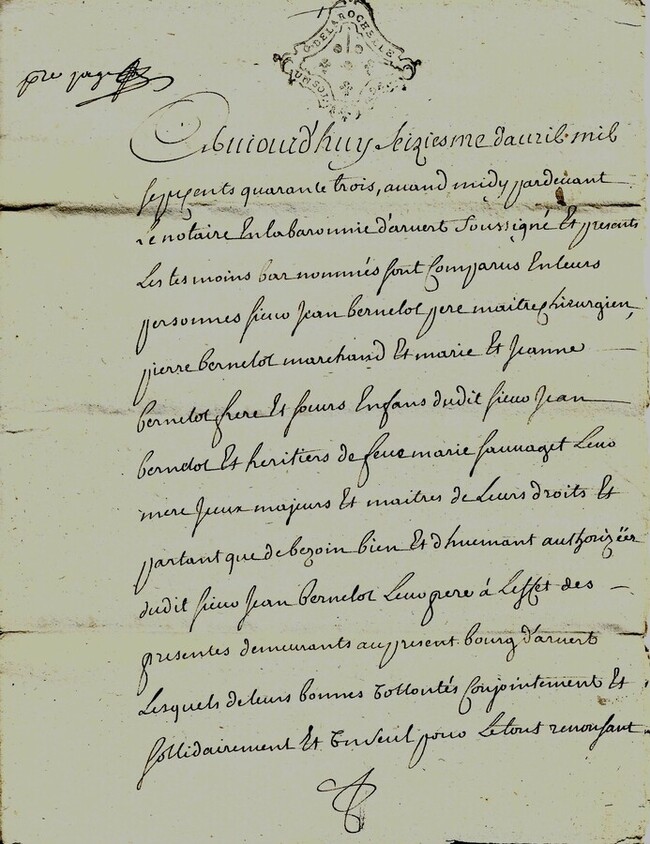 G. DE LA ROCHELLE
UN SOL
pre page
Aujourd'huy seiziesme d'auril mil
sept cents quarante trois, auand midy pardeuant
Le notaire En la baronnie d'aruert Soussigné Et presents
Les tesmoins bas nommés sont Comparus En leurs
personnes sieur Jean bernelot pere maitre chirurgien,
pierre bernelot marchand Et marie Et Jeanne
bernelot frere Et sœurs Enfans dudit sieur Jean
bernelot Et heritiers de feue marie sauuaget Leur
mere Jceux majeurs Et maitres de Leurs droits Et
partant que de bezoin bien Et dhuemant authorizéés
dudit sieur Jean bernelot Leur pere á L'effet des
presentes demeurants au present bourg d'aruert
Lesquels de leurs bonnes vollontés Conjointement Et
sollidairement Et Vn seul pour Le tout renonsant